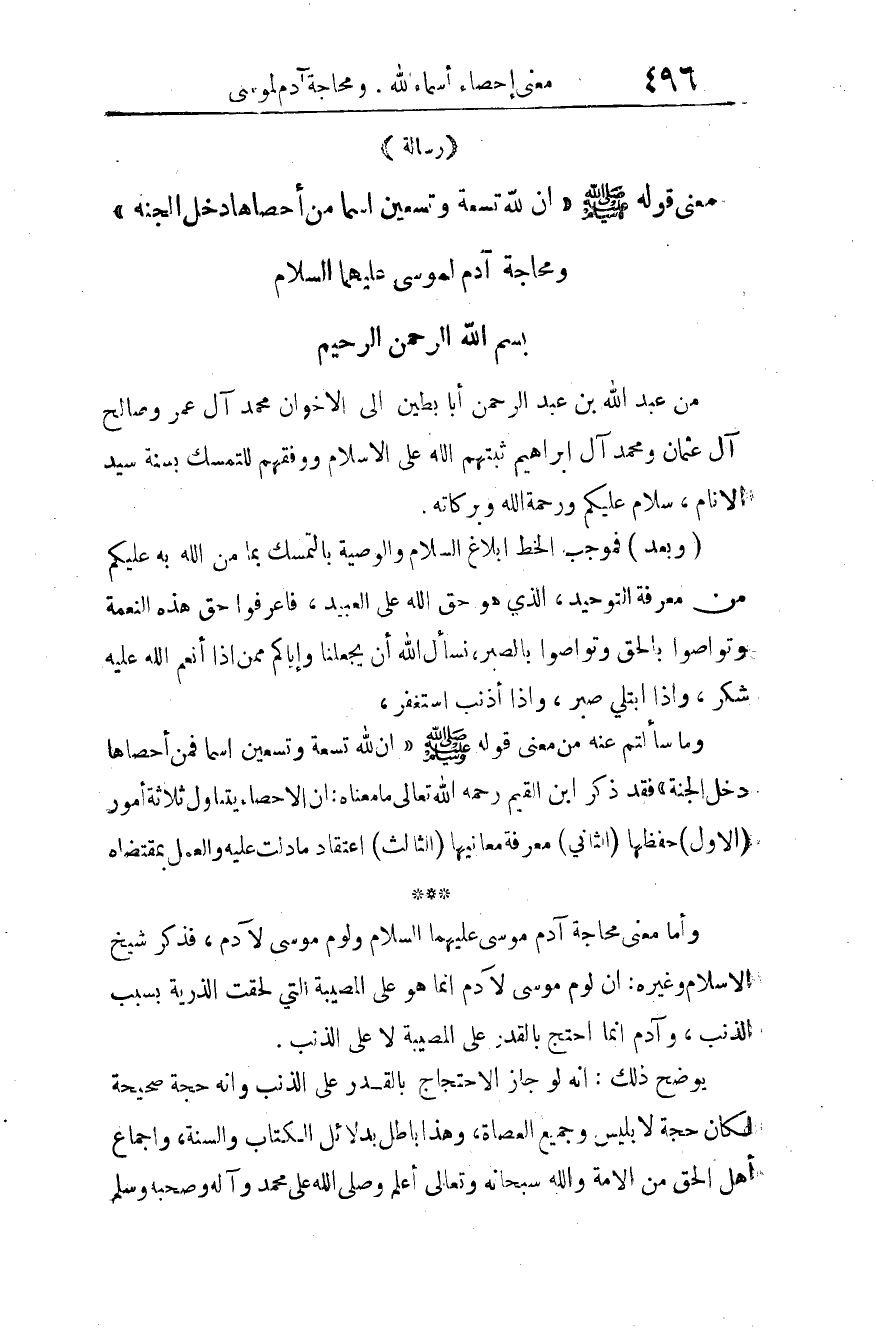 ٤٩٦ معنى إحصاء أسماء لله . ومحاجة آدم لموسى
(رسالة)
معنى قوله ﷺ « ان لله تسعة وتسعين اسما من أحصاها دخل الجنه »
ومحاجة آدم لموسى عليهما السلام
بسم الله الرحمن الرحيم
من عبد الله بن عبد الرحمن أبا بطين الى الاخوان محمد آل عمر وصالح
آل عثمان ومحمد آل ابراهيم ثبتهم الله على الاسلام ووفقهم للتمسك بسنة سيد
الانام ، سلام عليكم ورحمة الله وبركاته .
( وبعد ) فموجب الخط ابلاغ السلام والوصية بالتمسك بما من الله به عليكم
من معرفة التوحيد ، الذي هو حق الله على العبيد ، فاعرفوا حق هذه النعمة
وتواصوا بالحق وتواصوا بالصبر، نسأل الله أن يجعلنا وإياكم ممن اذا أنعم الله عليه
شكر ، واذا ابتلي صبر ، واذا أذنب استغفر ،
وما سألتم عنه من معنى قوله ﷺ « ان لله تسعة وتسعين اسما فمن أحصاها
دخل الجنة» فقد ذكر ابن القيم رحمه الله تعالى ما معناه: ان الاحصاء يتناول ثلاثة أمور
(الاول) حفظها (الثاني) معرفة معانيها (الثالث) اعتقاد ما دلت عليه والعمل بمقتضاه
***
وأما معنى محاجة آدم موسى عليهما السلام ولوم موسى لآدم ، فذكر شيخ
الاسلام وغيره: ان لوم موسى لآدم انما هو على المصيبة التي لحقت الذرية بسبب
الذنب ، وآدم انما احتج بالقدر على المصيبة لا على الذنب .
يوضح ذلك : انه لو جاز الاحتجاج بالقدر على الذنب وانه حجة صحيحة
لكان حجة لابليس وجميع العصاة، وهذا باطل بدلائل الكتاب والسنة، واجماع
أهل الحق من الامة والله سبحانه وتعالى أعلم وصلى الله على محمد وآله وصحبه وسلم